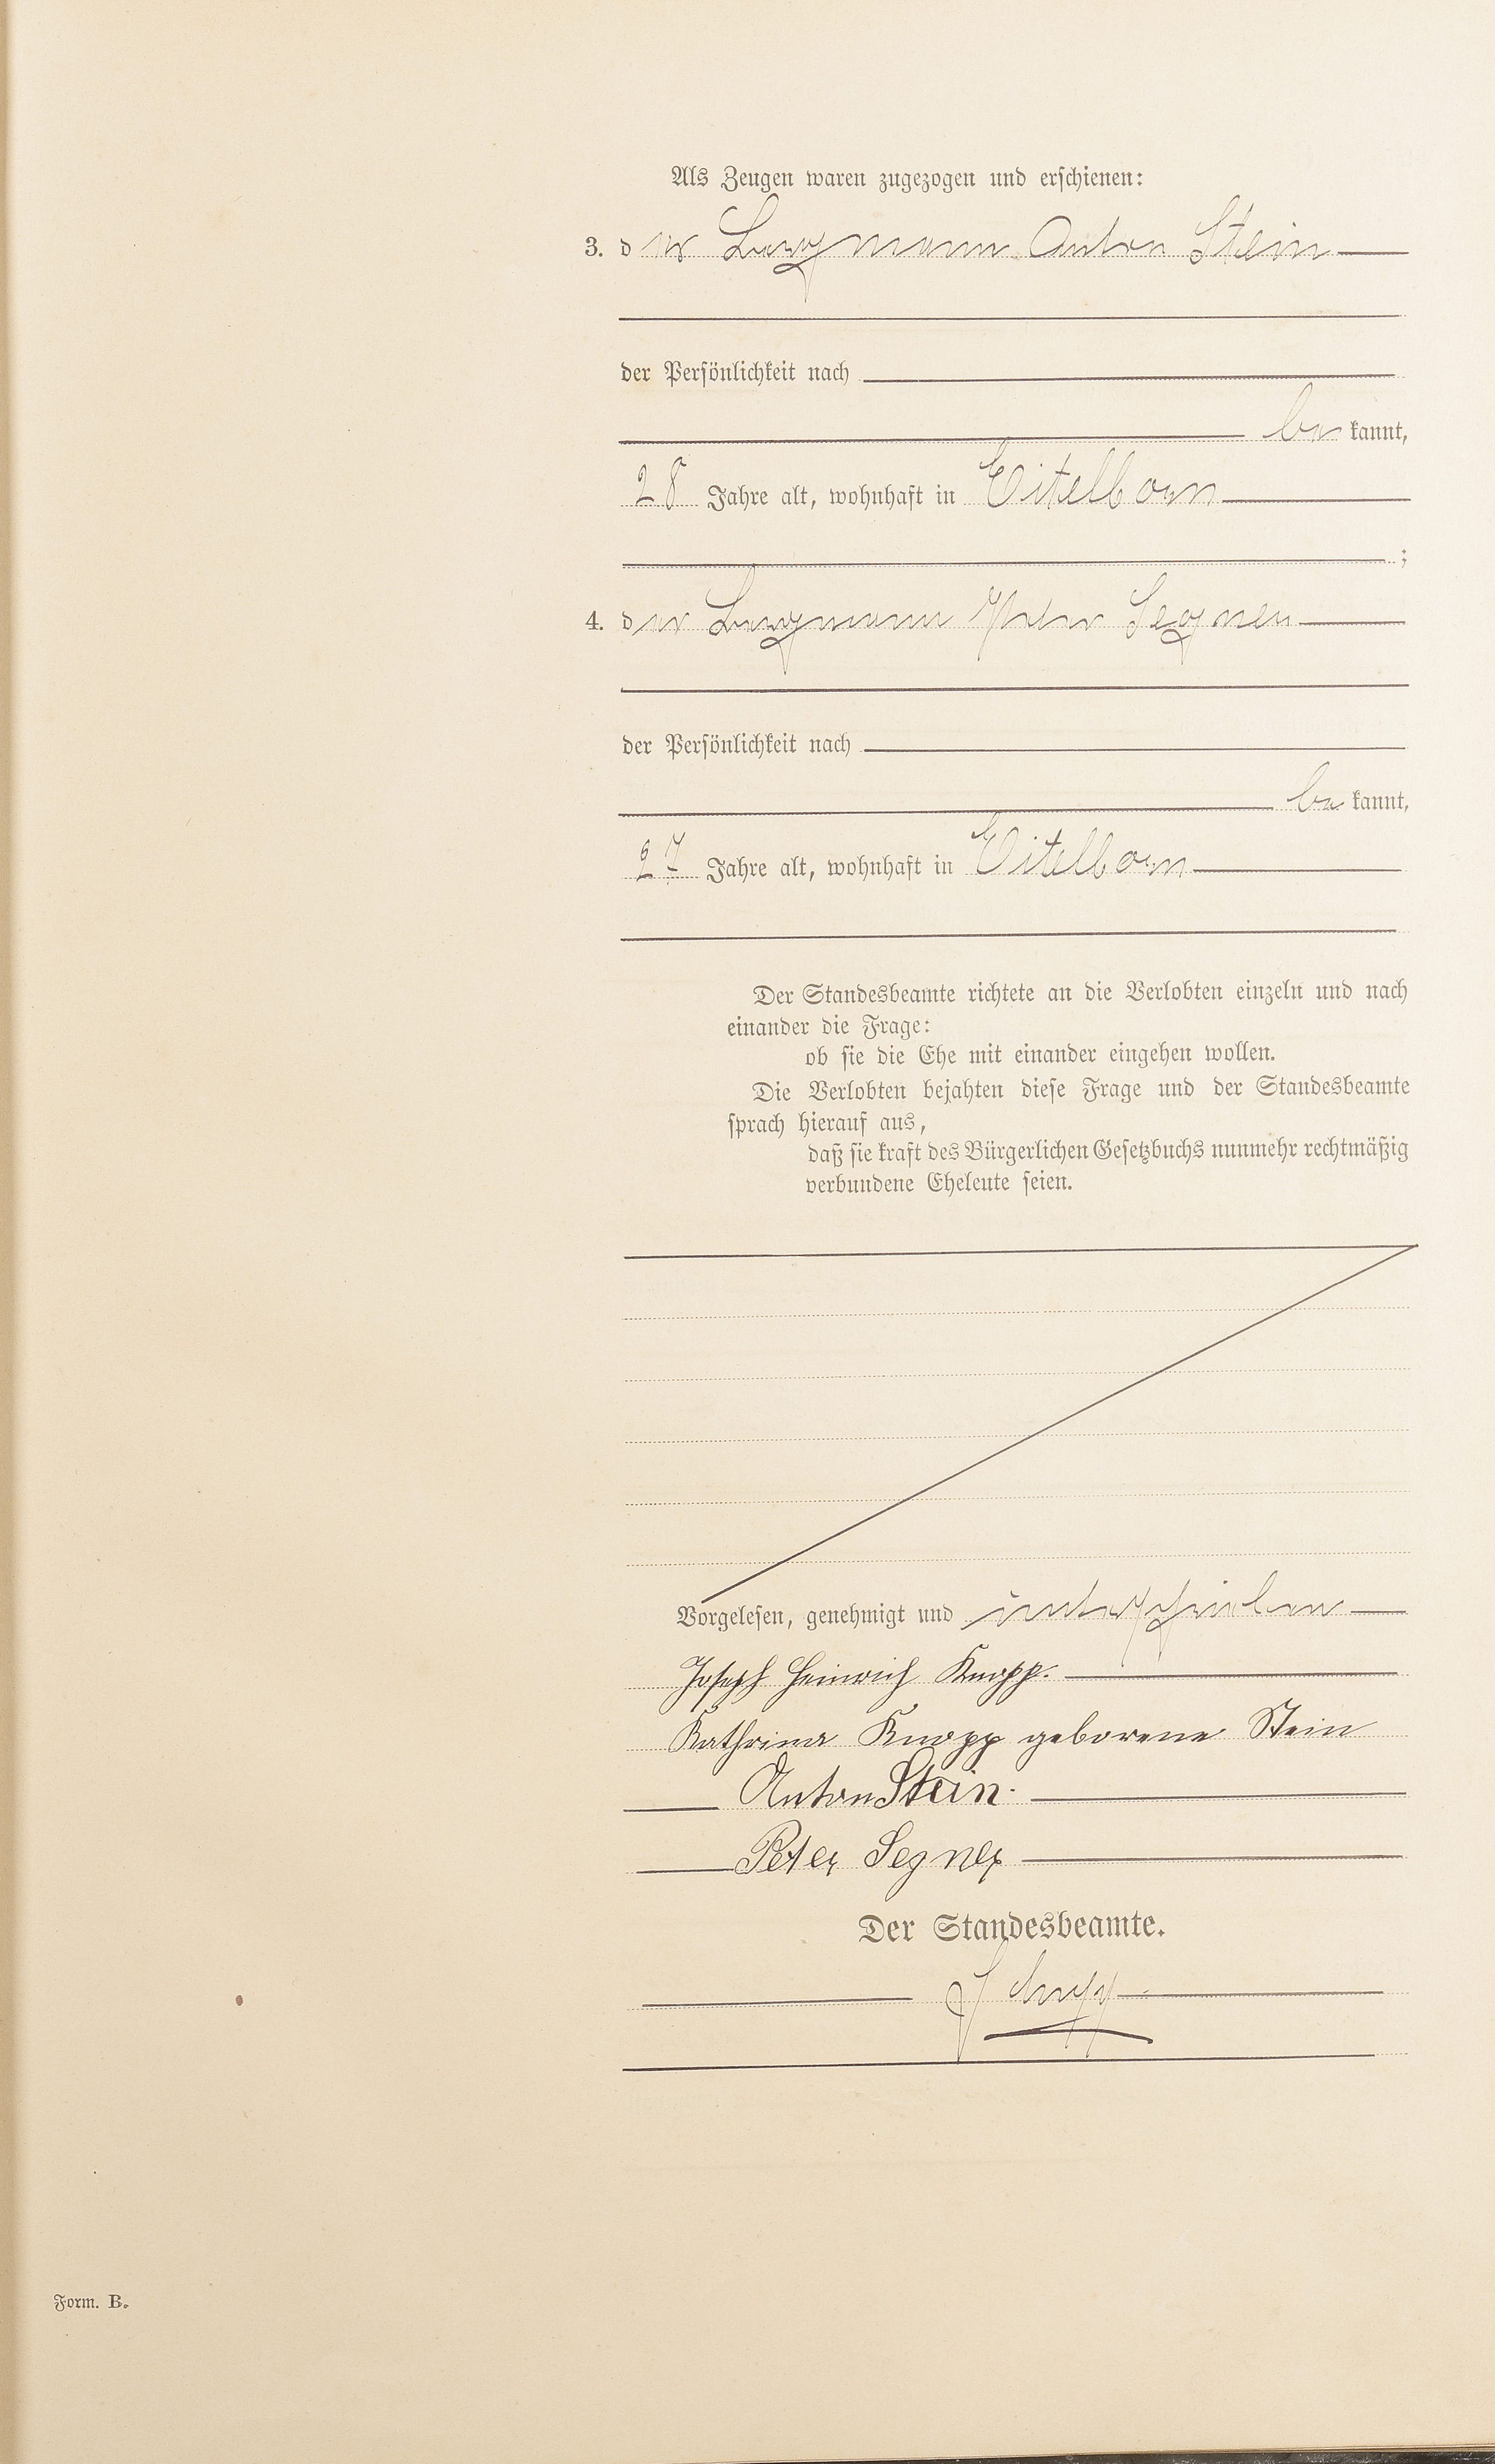 Als Zeugen waren zugezogen und erschienen:
3. der Bergmann Anton Stein
der Persönlichkeit nach
be kannt,
28 Jahre alt, wohnhaft in Eitelborn
;
4. der Bergmann Peter Segner
der Persönlichkeit nach
be kannt,
27 Jahre alt, wohnhaft in Eitelborn
Der Standesbeamte richtete an die Verlobten einzeln und nach
einander die Frage:
ob sie die Ehe mit einander eingehen wollen.
Die Verlobten bejahten diese Frage und der Standesbeamte
sprach hierauf aus,
daß sie kraft des Bürgerlichen Gesetzbuchs nunmehr rechtmäßig
verbundene Eheleute seien.
Vorgelesen, genehmigt und unterschrieben
Joseph Heinrich Knopp.
Kathrina Knopp geborene Stein
Anton Stein.
Peter Segner
Der Standesbeamte.
Form. B.